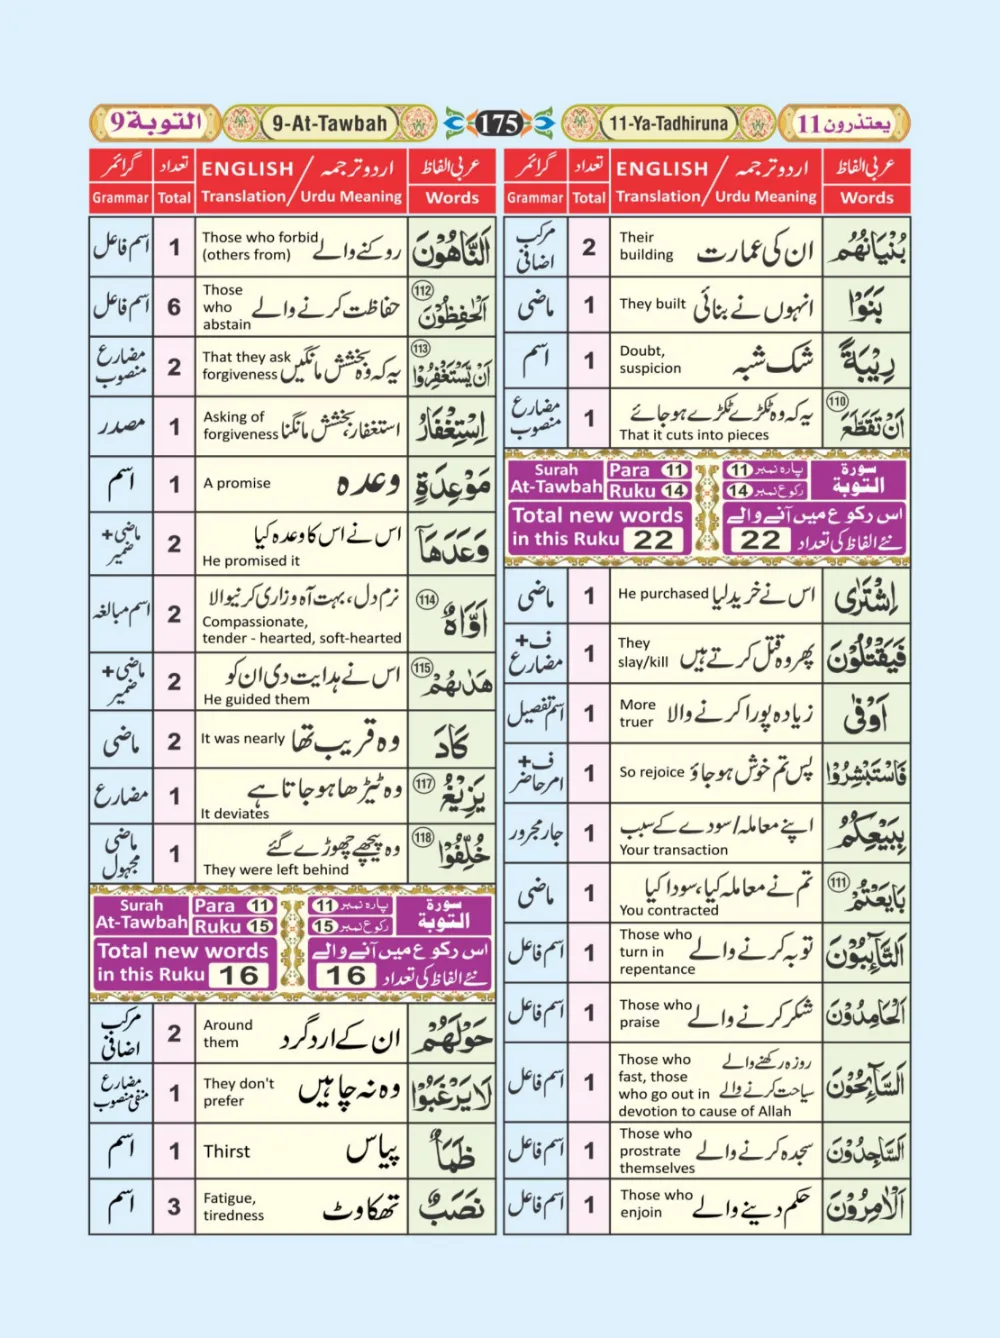 التوبة 9
9-At-Tawbah
175
11-Ya-Tadhiruna
یعتذرون 11
عربی الفاظ
اردو ترجمہ / ENGLISH
تعداد
گرائمر
Words
Translation / Urdu Meaning
Total
Grammar
بُنْيَانُهُمُ ان کی عمارت Their building 2 مرکب اضافی
بَنَوْا انہوں نے بنائی They built 1 ماضی
رِيْبَةً شک شبہ Doubt, suspicion 1 اسم
اَنْ تَقَطَّعَ (110) یہ کہ وہ ٹکڑے ٹکڑے ہو جائے That it cuts into pieces 1 مضارع منصوب
Surah At-Tawbah
Para 11
Ruku 14
پارہ نمبر 11
رکوع نمبر 14
سورة التوبة
Total new words in this Ruku 22
اس رکوع میں آنے والے نئے الفاظ کی تعداد 22
اِشْتَرٰى اس نے خرید لیا He purchased 1 ماضی
فَيَقْتُلُوْنَ پھر وہ قتل کرتے ہیں They slay/kill 1 ف+ مضارع
اَوْفٰى زیادہ پورا کرنے والا More truer 1 اسم تفصیل
فَاسْتَبْشِرُوْا پس تم خوش ہو جاؤ So rejoice 1 ف+ امر حاضر
بِبَيْعِكُمُ اپنے معاملہ/سودے کے سبب Your transaction 1 جار مجرور
بَايَعْتُمْ (111) تم نے معاملہ کیا، سودا کیا You contracted 1 ماضی
اَلتَّآئِبُوْنَ توبہ کرنے والے Those who turn in repentance 1 اسم فاعل
اَلْحَامِدُوْنَ شکر کرنے والے Those who praise 1 اسم فاعل
اَلسَّآئِحُوْنَ روزہ رکھنے والے سیاحت کرنے والے Those who fast, those who go out in devotion to cause of Allah 1 اسم فاعل
اَلسَّاجِدُوْنَ سجدہ کرنے والے Those who prostrate themselves 1 اسم فاعل
اَلْاٰمِرُوْنَ حکم دینے والے Those who enjoin 1 اسم فاعل
عربی الفاظ
اردو ترجمہ / ENGLISH
تعداد
گرائمر
Words
Translation / Urdu Meaning
Total
Grammar
اَلنَّاهُوْنَ روکنے والے Those who forbid (others from) 1 اسم فاعل
اَلْحٰفِظُوْنَ (112) حفاظت کرنے والے Those who abstain 6 اسم فاعل
اَنْ يَّسْتَغْفِرُوْا (113) یہ کہ وہ بخشش مانگیں That they ask forgiveness 2 مضارع منصوب
اِسْتِغْفَارُ استغفار، بخشش مانگنا Asking of forgiveness 1 مصدر
مَوْعِدَةٍ وعدہ A promise 1 اسم
وَعَدَهَآ اس نے اس کا وعدہ کیا He promised it 2 ماضی+ ضمیر
اَوَّاهٌ (114) نرم دل، بہت آہ وزاری کرنیوالا Compassionate, tender - hearted, soft-hearted 2 اسم مبالغہ
هَدٰىهُمْ (115) اس نے ہدایت دی ان کو He guided them 2 ماضی+ ضمیر
كَادَ وہ قریب تھا It was nearly 2 ماضی
يَزِيْغُ (117) وہ ٹیڑھا ہو جاتا ہے It deviates 1 مضارع
خُلِّفُوْا (118) وہ پیچھے چھوڑے گئے They were left behind 1 ماضی مجہول
Surah At-Tawbah
Para 11
Ruku 15
پارہ نمبر 11
رکوع نمبر 15
سورة التوبة
Total new words in this Ruku 16
اس رکوع میں آنے والے نئے الفاظ کی تعداد 16
حَوْلَهُمْ ان کے ارد گرد Around them 2 مرکب اضافی
لَا يَرْغَبُوْا وہ نہ چاہیں They don't prefer 1 مضارع منفی منصوب
ظَمَاٌ پیاس Thirst 1 اسم
نَصَبٌ تھکاوٹ Fatigue, tiredness 3 اسم